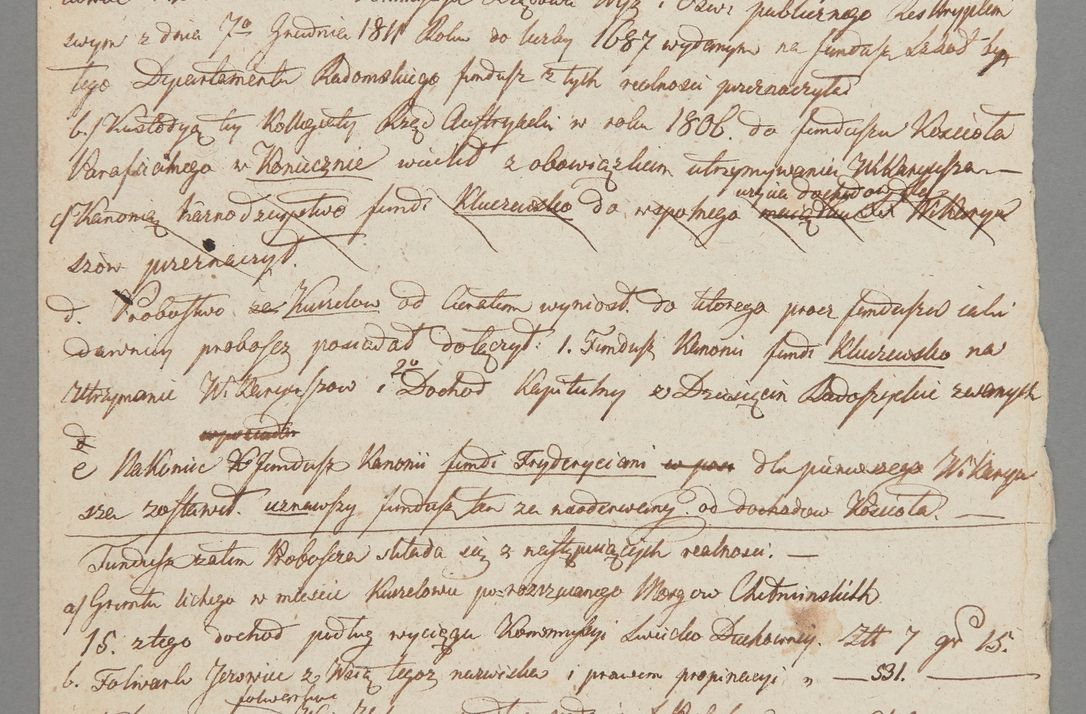 swym z dnia 7ª Grudnia 1811 Roku do liczby 1687 wydanym na fundusz Szkoł by
tego Departamentu Radomskiego fundusz z tych realności przeznaczył
b./ Kustodyą tey Kollegiaty Rząd Austryacki w roku 1806. do funduszu Kościoła
Parafialnego w Koniecznie wcielił z obowiązkiem utrzymywania Wikaryusza —
c/ Kanonią Karnodzieystwo fundi Kluczewsko do wspolnego Wikaryu
szów przeznaczył.
d. Probostwo za Kurzelow od Curatum wyniosł. do ktorego procz funduszu iaki
dawniey proboscz posiadał dołączył: 1. Fundusz Kanonii fundi Kluczewsko na
Utrzymanie Wikaryuszow i 2º Dochod Kapitulny z Dziesięcin Radoszyckie zwanych
e Nakoniec Fundusz Kanonii fundi Fryderyciani dla pierwszego Wikaryu
sza zostawił. uznawszy fundusz ten za nieoderwalny od dochodow Kościoła. —
Fundusz zatem Proboscza składa się z następuiących realnosci. —
a/ Gruntu lichego w miescie Kurzelowie porozrzucanego Morgow Chełminskich
15. z tego dochod podług wyciągu Kommissyi Swiecko Duchowney. Złt 7 gr 15.
b. Folwark Jerowiec z Wsią tegoż nazwiska i prawem propinacyi " — 531. —
folwarku